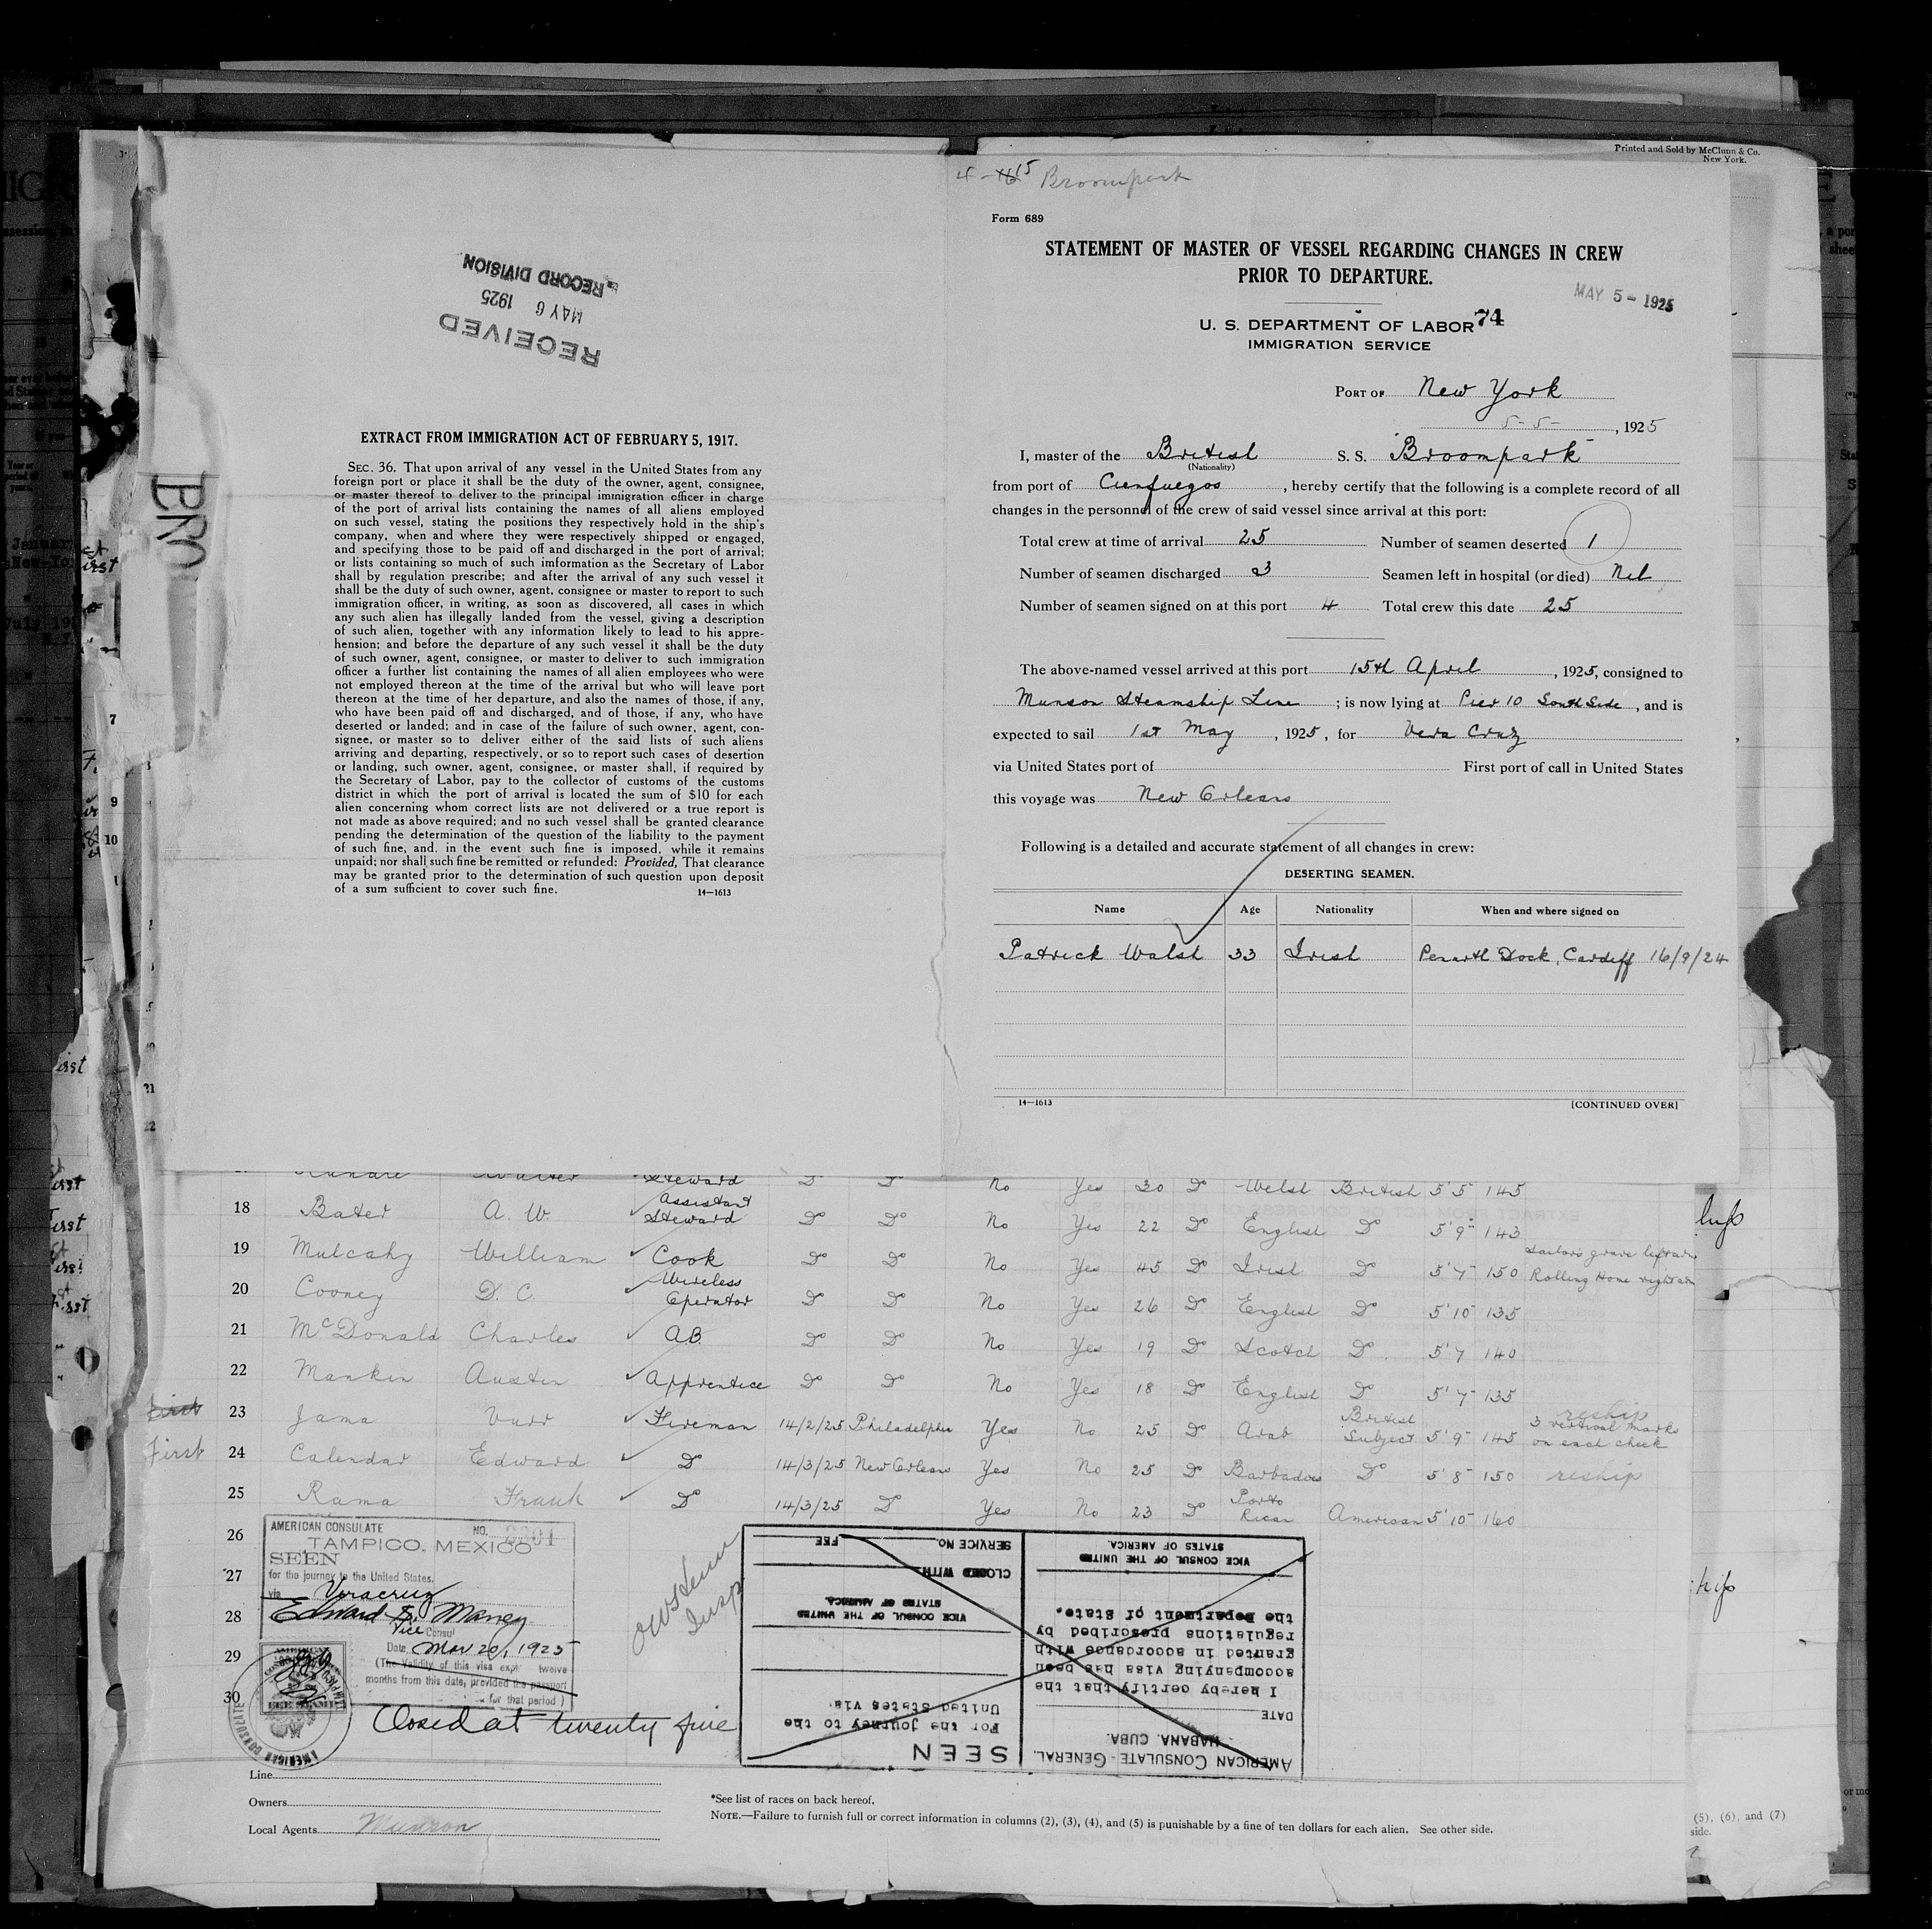 Printed and Sold by McClunn & Co.
New York.
4-15 Broompark
Form 689
STATEMENT OF MASTER OF VESSEL REGARDING CHANGES IN CREW
PRIOR TO DEPARTURE.
MAY 5 - 1925
U. S. DEPARTMENT OF LABOR 74
IMMIGRATION SERVICE
PORT OF New York
5-5-, 1925
I, master of the British S. S. Broompark
(Nationality)
from port of Cienfuegos, hereby certify that the following is a complete record of all
changes in the personnel of the crew of said vessel since arrival at this port:
Total crew at time of arrival 25 Number of seamen deserted 1
Number of seamen discharged 3 Seamen left in hospital (or died) Nil
Number of seamen signed on at this port 4 Total crew this date 25
The above-named vessel arrived at this port 15th April, 1925, consigned to
Munson Steamship Line; is now lying at Pier 10 South Side, and is
expected to sail 1st May, 1925, for Vera Cruz
via United States port of First port of call in United States
this voyage was New Orleans
Following is a detailed and accurate statement of all changes in crew:
DESERTING SEAMEN.
Name Age Nationality When and where signed on
Patrick Walsh 33 Irish Penarth Dock, Cardiff 16/9/24
14—1613 [CONTINUED OVER]
RECEIVED
MAY 6 1925
RECORD DIVISION
EXTRACT FROM IMMIGRATION ACT OF FEBRUARY 5, 1917.
SEC. 36. That upon arrival of any vessel in the United States from any
foreign port or place it shall be the duty of the owner, agent, consignee,
or master thereof to deliver to the principal immigration officer in charge
of the port of arrival lists containing the names of all aliens employed
on such vessel, stating the positions they respectively hold in the ship's
company, when and where they were respectively shipped or engaged,
and specifying those to be paid off and discharged in the port of arrival;
or lists containing so much of such imformation as the Secretary of Labor
shall by regulation prescribe; and after the arrival of any such vessel it
shall be the duty of such owner, agent, consignee or master to report to such
immigration officer, in writing, as soon as discovered, all cases in which
any such alien has illegally landed from the vessel, giving a description
of such alien, together with any information likely to lead to his appre-
hension; and before the departure of any such vessel it shall be the duty
of such owner, agent, consignee, or master to deliver to such immigration
officer a further list containing the names of all alien employees who were
not employed thereon at the time of the arrival but who will leave port
thereon at the time of her departure, and also the names of those, if any,
who have been paid off and discharged, and of those, if any, who have
deserted or landed; and in case of the failure of such owner, agent, con-
signee, or master so to deliver either of the said lists of such aliens
arriving and departing, respectively, or so to report such cases of desertion
or landing, such owner, agent, consignee, or master shall, if required by
the Secretary of Labor, pay to the collector of customs of the customs
district in which the port of arrival is located the sum of $10 for each
alien concerning whom correct lists are not delivered or a true report is
not made as above required; and no such vessel shall be granted clearance
pending the determination of the question of the liability to the payment
of such fine, and, in the event such fine is imposed, while it remains
unpaid; nor shall such fine be remitted or refunded: Provided, That clearance
may be granted prior to the determination of such question upon deposit
of a sum sufficient to cover such fine. 14—1613
BRO
Steward Do Do No Yes 30 Do Welsh British 5'5 145
18 Bater A. W. Assistant Steward Do Do No Yes 22 Do English Do 5'9 143
19 Mulcahy William Cook Do Do No Yes 45 Do Irish Do 5'7 150 Sailors grave left arm Rolling Home right arm
20 Cooney D. C. Wireless Operator Do Do No Yes 26 Do English Do 5'10 135
21 McDonald Charles A.B. Do Do No Yes 19 Do Scotch Do 5'7 140
22 Mankin Austin Apprentice Do Do No Yes 18 Do English Do 5'7 135
First 23 Jama Fireman 14/2/25 Philadelphia Yes No 25 Do Arab British Subject 5'9 145 reship 3 vertical marks on each cheek
First 24 Calendar Edward Do 14/3/25 New Orleans Yes No 25 Do Barbados Do 5'8 150 reship
25 Rama Frank Do 14/3/25 Do Yes No 23 Do Porto Rican American 5'10 160
26
27
28
29
30
AMERICAN CONSULATE NO.
TAMPICO, MEXICO
SEEN
for the journey to the United States.
via Veracruz
Edward S. Maney
Vice Consul
Date Mar 20, 1925
(The Validity of this visa expi twelve
months from this date, provided the passport
for that period)
AMERICAN CONSULATE
FEE STAMP
Closed at twenty five
Insp
AMERICAN CONSULATE-GENERAL,
HABANA, CUBA.
DATE
I hereby certify that the
accompanying visa has been
granted in accordance with
regulations prescribed by
the Department of State.
VICE CONSUL OF THE UNITED
STATES OF AMERICA.
SEEN
For the journey to the
United States via
VICE CONSUL OF THE UNITED
STATES OF AMERICA.
CLOSED WITH
SERVICE NO. FEE
Line
Owners
Local Agents Munson
*See list of races on back hereof.
NOTE.—Failure to furnish full or correct information in columns (2), (3), (4), and (5) is punishable by a fine of ten dollars for each alien. See other side.
(5), (6), and (7)
side.